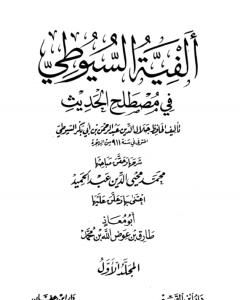 ألفية السيوطي
في مصطلح الحديث
تأليف الحافظ جلال الدين عبد الرحمن بن أبي بكر السيوطي
المتوفى في سنة ٩١١ من الهجرة
شرحها وحقق مباحثها
محمد محيي الدين عبد الحميد
اعتنى بها وعلق عليها
أبو معاذ
طارق بن عوض الله بن محمد
المجلد الأول